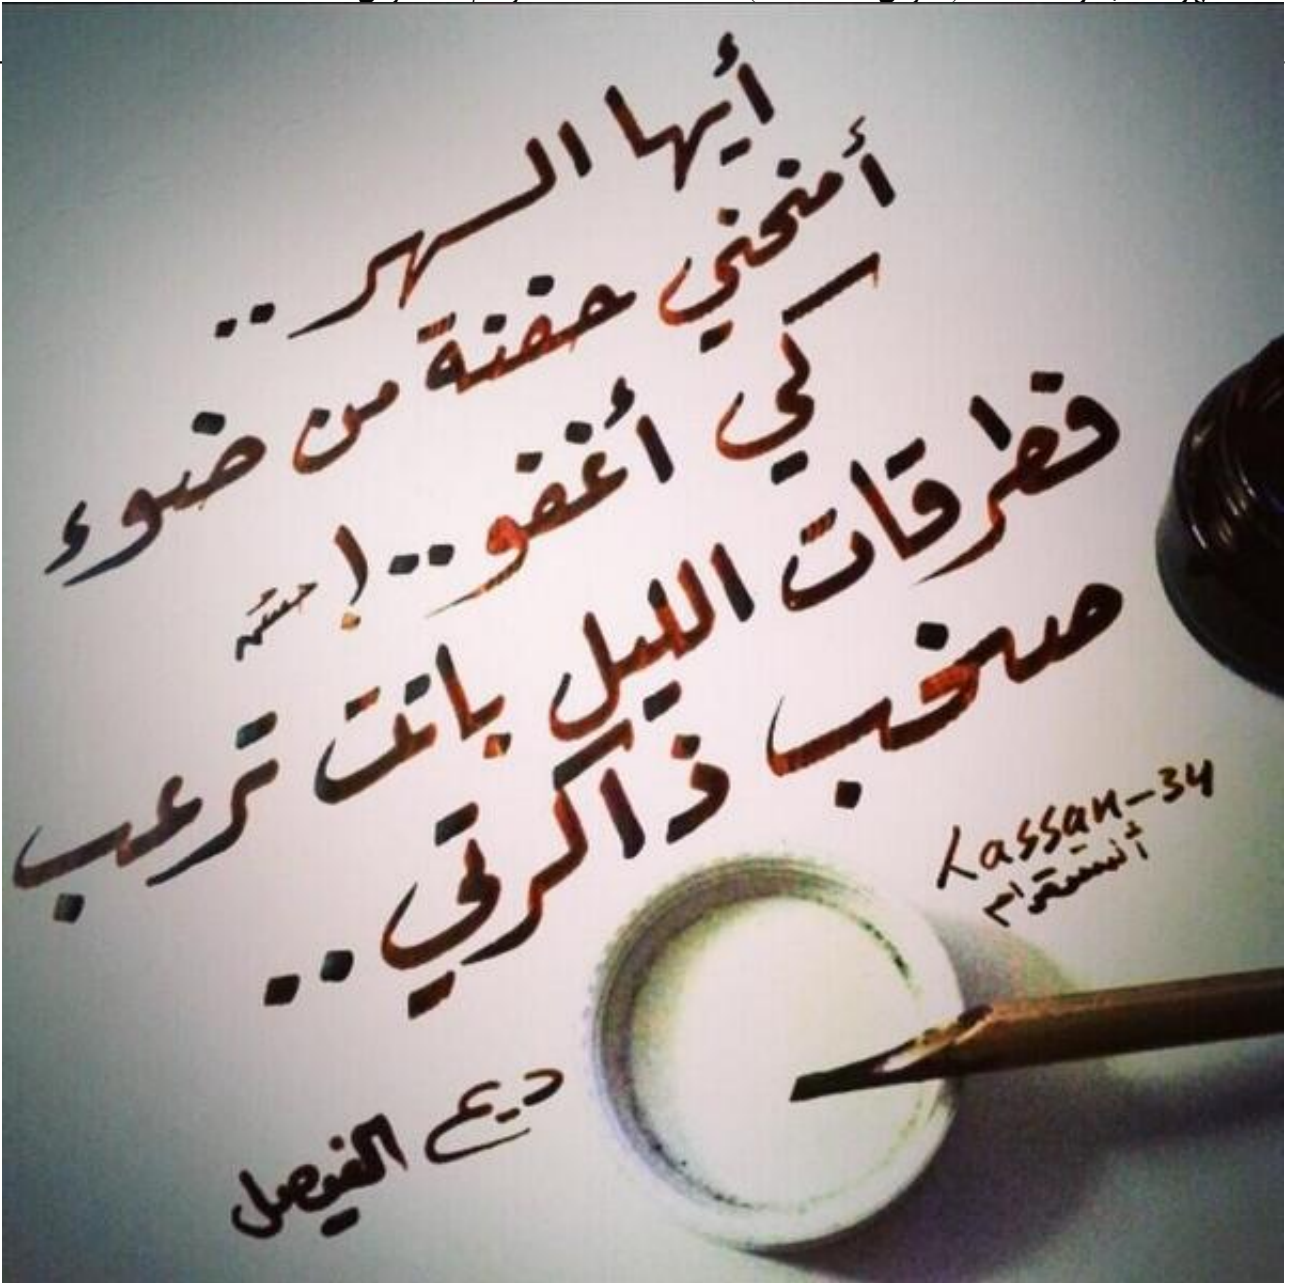 أيها السهر..
أمنحني حفنة من ضوء
كي أغفو..!
فطرقات الليل باتت ترعب
صخب ذاكرتي..
Lassan-34
أنستقرام
الفيصل